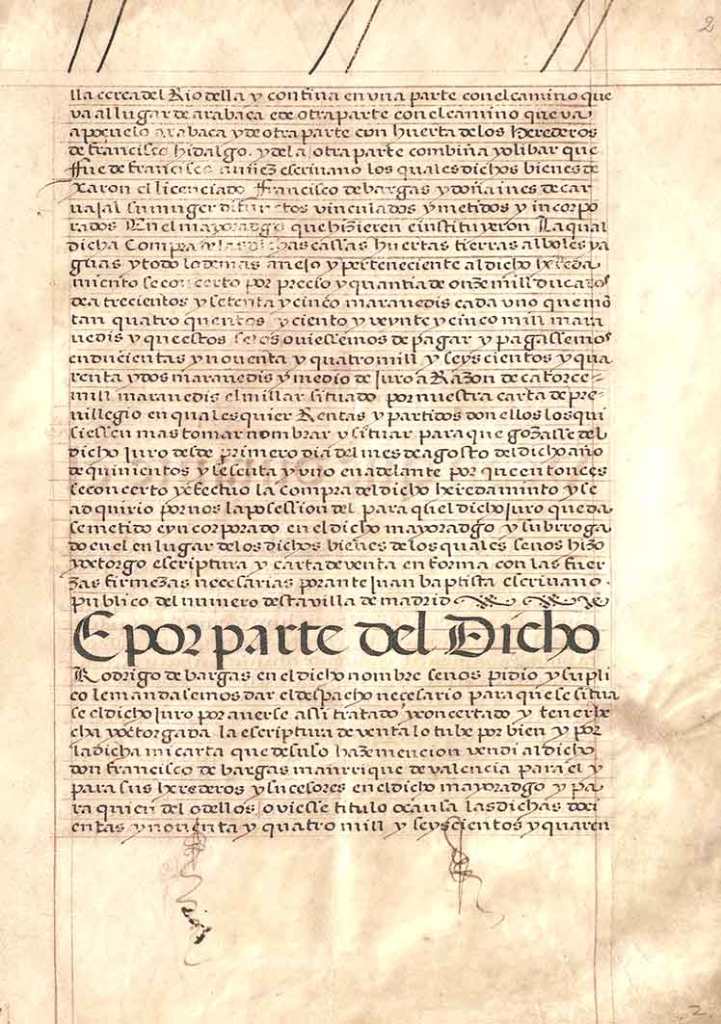 2
lla cerca del Rio della y confina en vna parte con el camino que
va al lugar de arabaca e de otra parte con el camino que va
a poçuelo arabaca y de otra parte con huerta de los herederos
de francisco hidalgo. y de la otra parte combiña y olibar que
ffue de francisco escriuano los quales dichos bienes de
xaron el licenciado ffrancisco de bargas y doña ines de car
uajal su muger difuntos vinculados y metidos y incorpo
rados En el mayoradgo que hizieren e instituyeron La qual
dicha Compra de las dichas cassas huertas tierras alboles ya
guas y todo lo demas anejo y perteneciente al dicho hereda
miento se concerto por precio y quantia de onze mill ducados
de a trecientos y setenta y cinco marauedis cada vno que mõ
tan quatro quentos y ciento y veynte y cinco mill mara
uedis y que estos se os ouiessemos de pagar y pagassemos
en ducientas y nouenta y quatro mill y seyscientos y qua
renta y dos marauedis y medio de Juro a Razon de catorce
mill marauedis el millar situado por nuestra carta de pre
uillegio en qualesquier Rentas y partidos don ellos los qui
siessen mas tomar nombrar y situar para que gozasse del
dicho Juro desde primero dia del mes de agosto del dicho año
de quinientos y sesenta y vno en adelante por que entonces
se concerto y efectuo la compra del dicho heredaminto y se
ad quirio por nos la possession del para qu el dicho Juro queda
se metido e yncorporado en el dicho mayoradgo y subrroga
do en el en lugar de los dichos bienes de los quales se nos hizo
y otorgo escriptura y carta de venta en forma con las fuer
zas firmezas necesarias por ante Juan baptista escriuano
publico del numero desta villa de madrid
E por parte del Dicho
Rodrigo de bargas en el dicho nombre se nos pidio y supli
co le mandasemos dar el despacho necesario para que se situa
se el dicho Juro por auerse assi tratado y concertado y tener he
cha y otorgada la escriptura de venta lo tube por bien y por
la dicha mi carta que de suso haze mencion vendi al dicho
don francisco de bargas manrrique de valencia para el y
para sus herederos y sucesores en el dicho mayoradgo y pa
ra quien del o dellos ouiesse titulo o causa las dichas doci
entas y nouenta y quatro mill y seyscientos y quaren
2